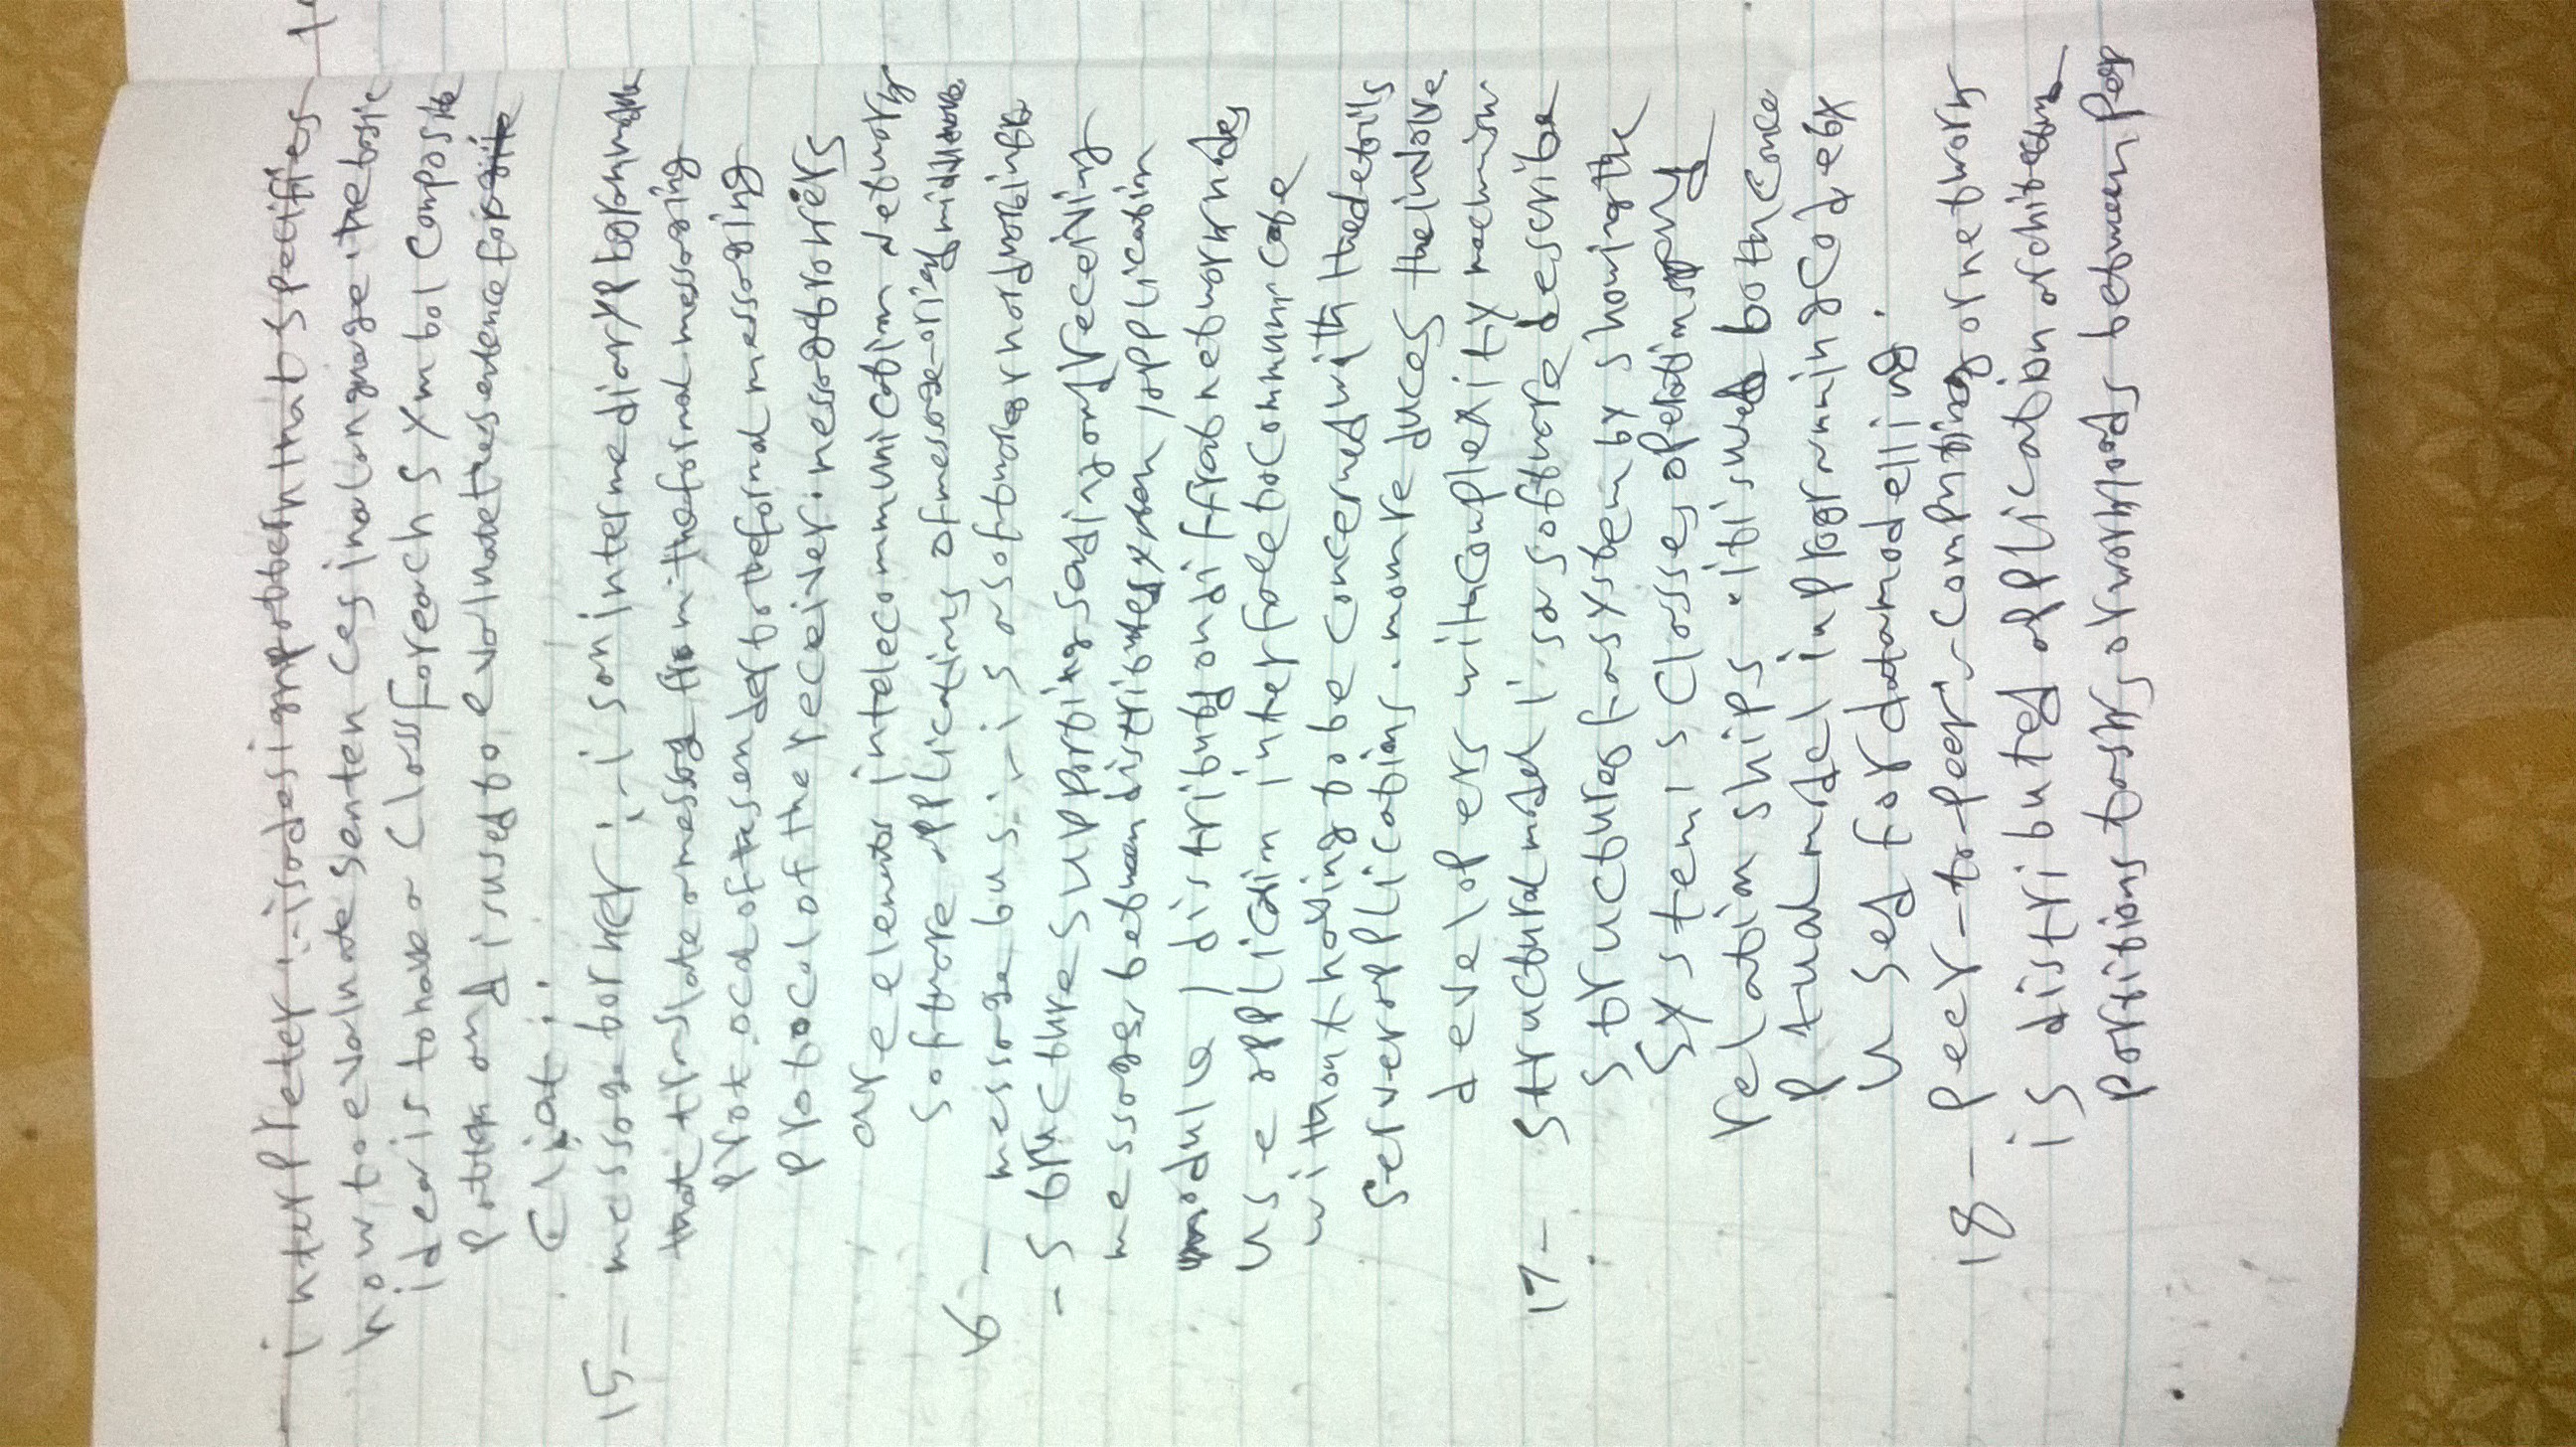 - interpreter :- is a design pattern that specifies
how to evaluate sentences in a language . the basic
idea is to have a class for each symbol composite
pattern and is used to evaluate the sentence for
client ..
15 - message borker :- is an intermediary program module
that translate a message from the formal messaging
protocol of the sender to the formal messaging
protocol of the receiver . message brokers
are elements in telecommunication network
software applications of message-oried middleware
16 - message bus :- is a software or hardware infra
- structure supporting sending and receiving
messages between distributed system , application
module , distributed on diffrent network nodes
use application interface to communicate
without having to be concerned with the details
server applications . mom reduces the involve
developers with complexity mechanism
17 - structural model is a software describe
structure of a system by showing the
system's classes operations and
relation ships . it is used both conce
ptual model in programming code
used for data modelling .
18 - peer-to-peer :- computing or network
is distributed application architecture
partitions tasks or workloads between peer